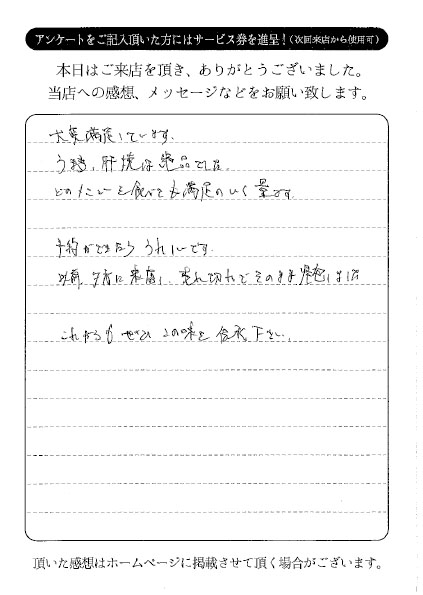 アンケートをご記入頂いた方にはサービス券を進呈!(次回来店から使用可)
本日はご来店を頂き、ありがとうございました。
当店への感想、メッセージなどをお願い致します。
大変満足しています。
う巻、肝焼は絶品でした。
どのメニューを食べても満足のいく量です。
予約ができたら うれしいです。
以前 夕方に来店し、売れ切れでそのまま帰宅しました
これからも ぜひ この味を 下さい。
頂いた感想はホームページに掲載させて頂く場合がございます。